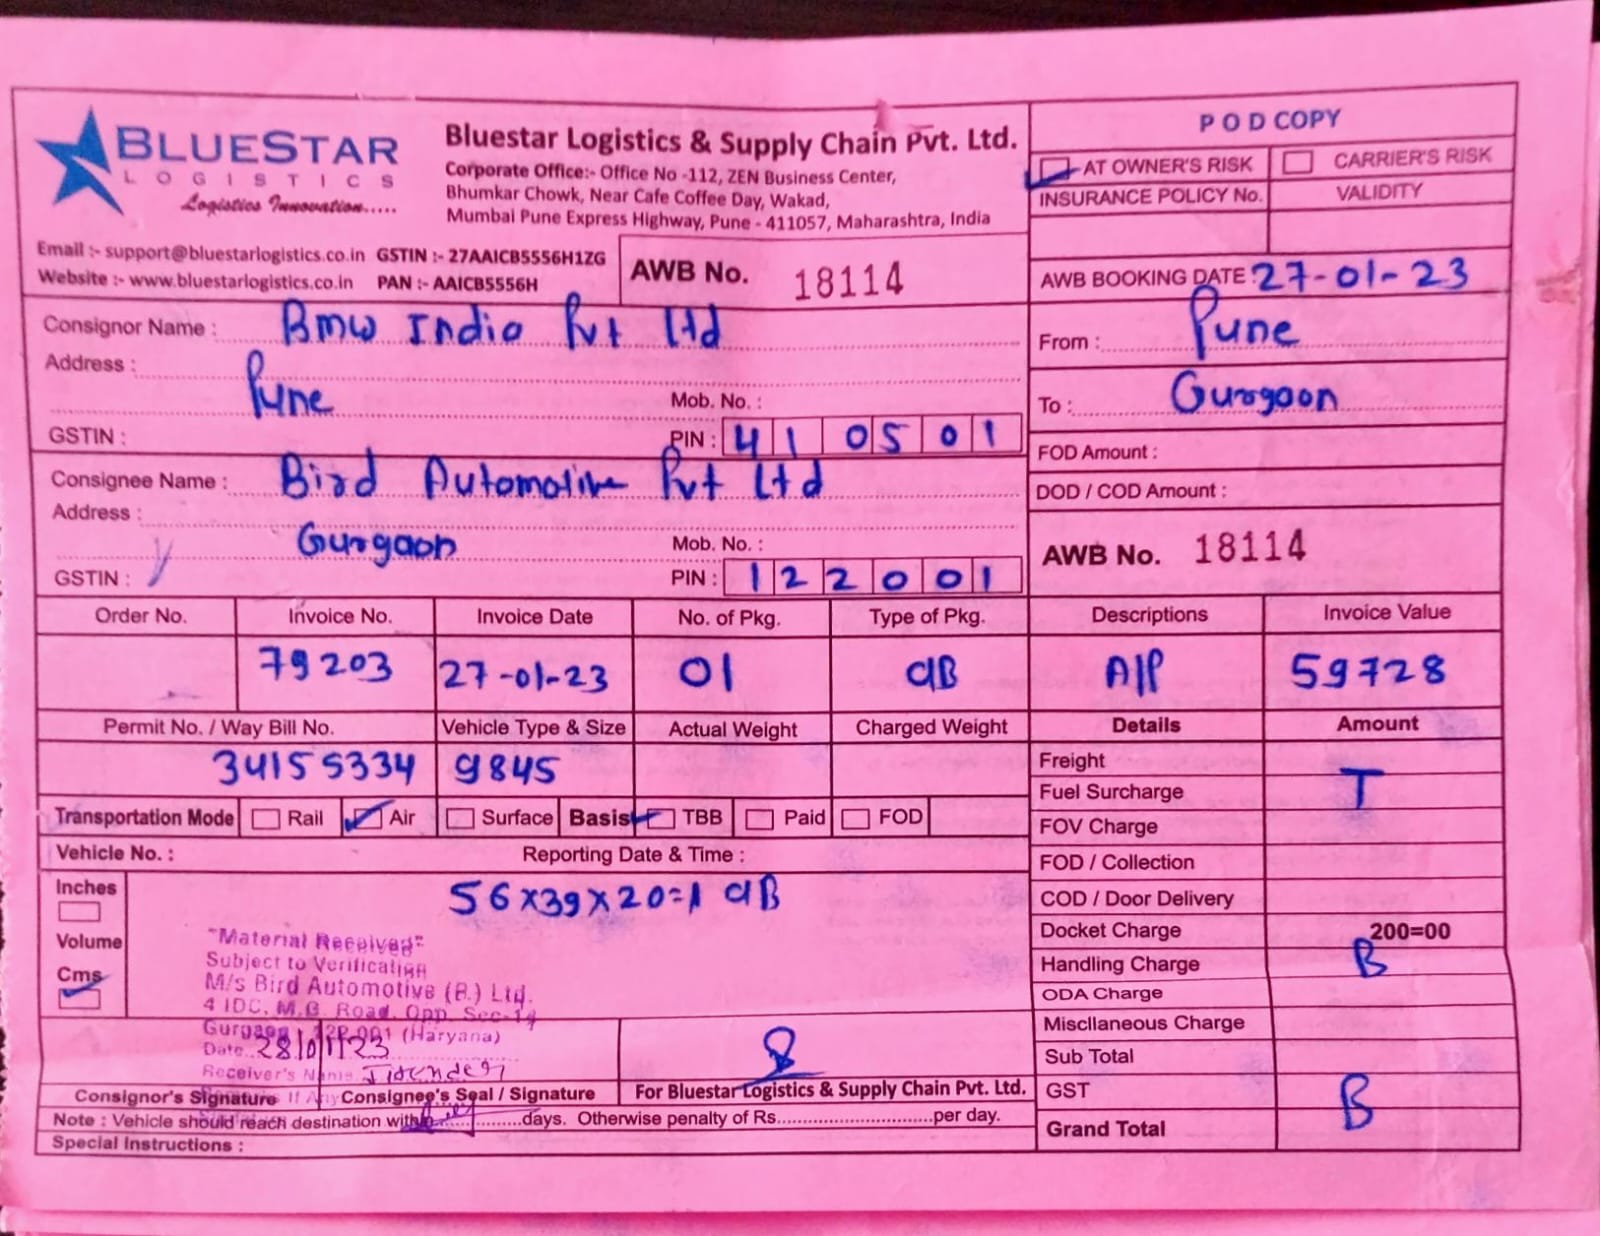 BLUESTAR
LOGISTICS
Logistics Innovation.....
Bluestar Logistics & Supply Chain Pvt. Ltd.
Corporate Office:- Office No -112, ZEN Business Center,
Bhumkar Chowk, Near Cafe Coffee Day, Wakad,
Mumbai Pune Express Highway, Pune - 411057, Maharashtra, India
Email :- support@bluestarlogistics.co.in GSTIN :- 27AAICB5556H1ZG
Website :- www.bluestarlogistics.co.in PAN :- AAICB5556H
AWB No. 18114
POD COPY
AT OWNER'S RISK CARRIER'S RISK
INSURANCE POLICY No. VALIDITY
AWB BOOKING DATE : 27-01-23
Consignor Name : Bmw India Pvt Ltd
Address :
Pune Mob. No. :
GSTIN : PIN : 410501
From : Pune
To : Gurgaon
FOD Amount :
DOD / COD Amount :
Consignee Name : Bird Automotive Pvt Ltd
Address :
Gurgaon Mob. No. :
GSTIN : PIN : 122001
AWB No. 18114
Order No. Invoice No. Invoice Date No. of Pkg. Type of Pkg. Descriptions Invoice Value
79203 27-01-23 01 CIB AIP 59728
Permit No. / Way Bill No. Vehicle Type & Size Actual Weight Charged Weight Details Amount
34155334 9845
Transportation Mode Rail Air Surface Basis TBB Paid FOD
Vehicle No. : Reporting Date & Time :
Inches
Volume
Cms
56x39x20=1 CIB
"Material Received"
Subject to Verification
M/s Bird Automotive (P.) Ltd.
4 IDC, M.G. Road, Opp. Sec-14
Gurgaon - 122 001 (Haryana)
Date 28/01/23
Receiver's Name
Consignor's Signature If Any Consignee's Seal / Signature For Bluestar Logistics & Supply Chain Pvt. Ltd.
Note : Vehicle should reach destination with ..........days. Otherwise penalty of Rs..............................per day.
Special Instructions :
Freight
Fuel Surcharge T
FOV Charge
FOD / Collection
COD / Door Delivery
Docket Charge 200=00
Handling Charge B
ODA Charge
Miscllaneous Charge
Sub Total
GST B
Grand Total